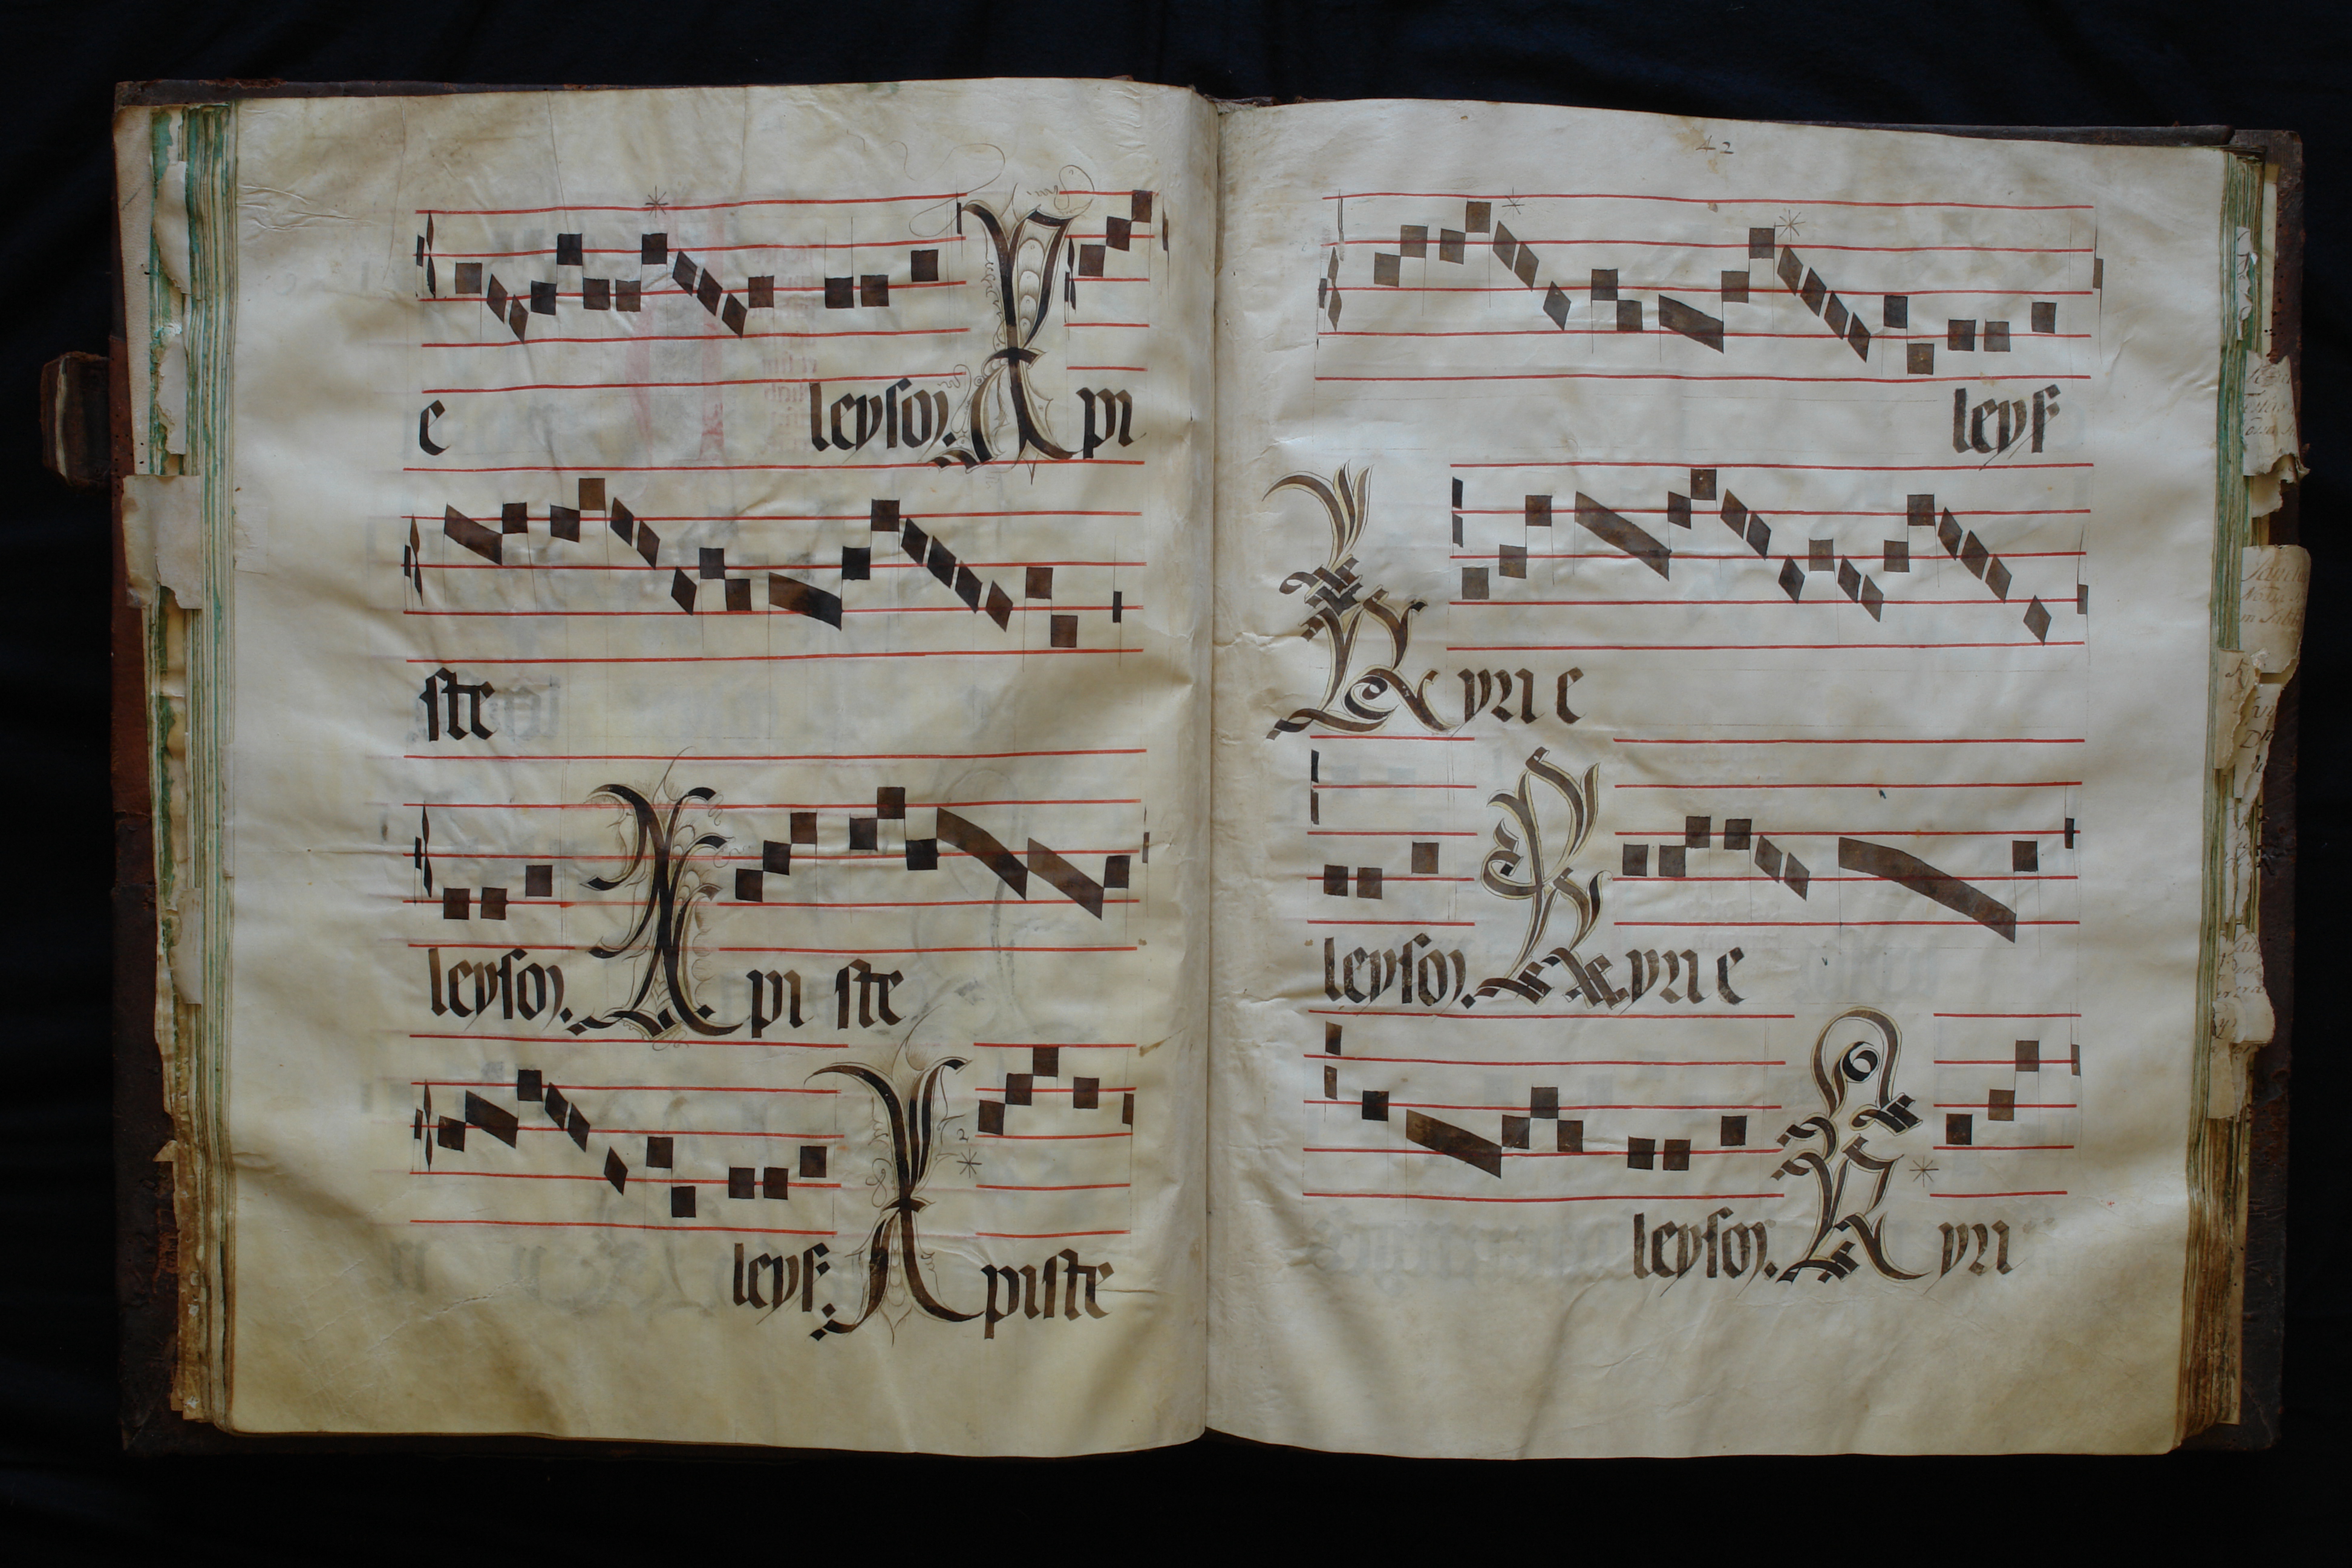 e leyson. Xpi
ste
leyson. Xpi ste
leys. Xpiste
42
leys
Kyrie
leyson. Kyrie
leyson. Kyri